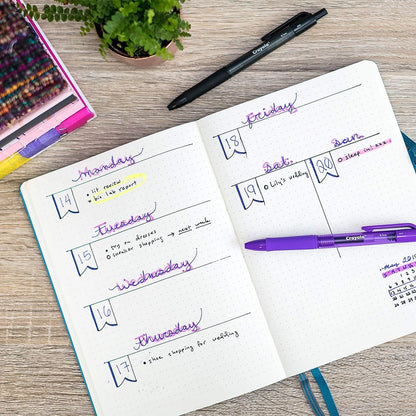 Monday
14
• lit review
• bio lab report
Tuesday
15
• try on dresses
o sneaker shopping → next week
Wednesday
16
Thursday
17
• shoe shopping for wedding
Friday
18
Sat.
19
o Lily's wedding
Sun
20
o sleep in!
May
S M T W T F S
Crayola
Crayola